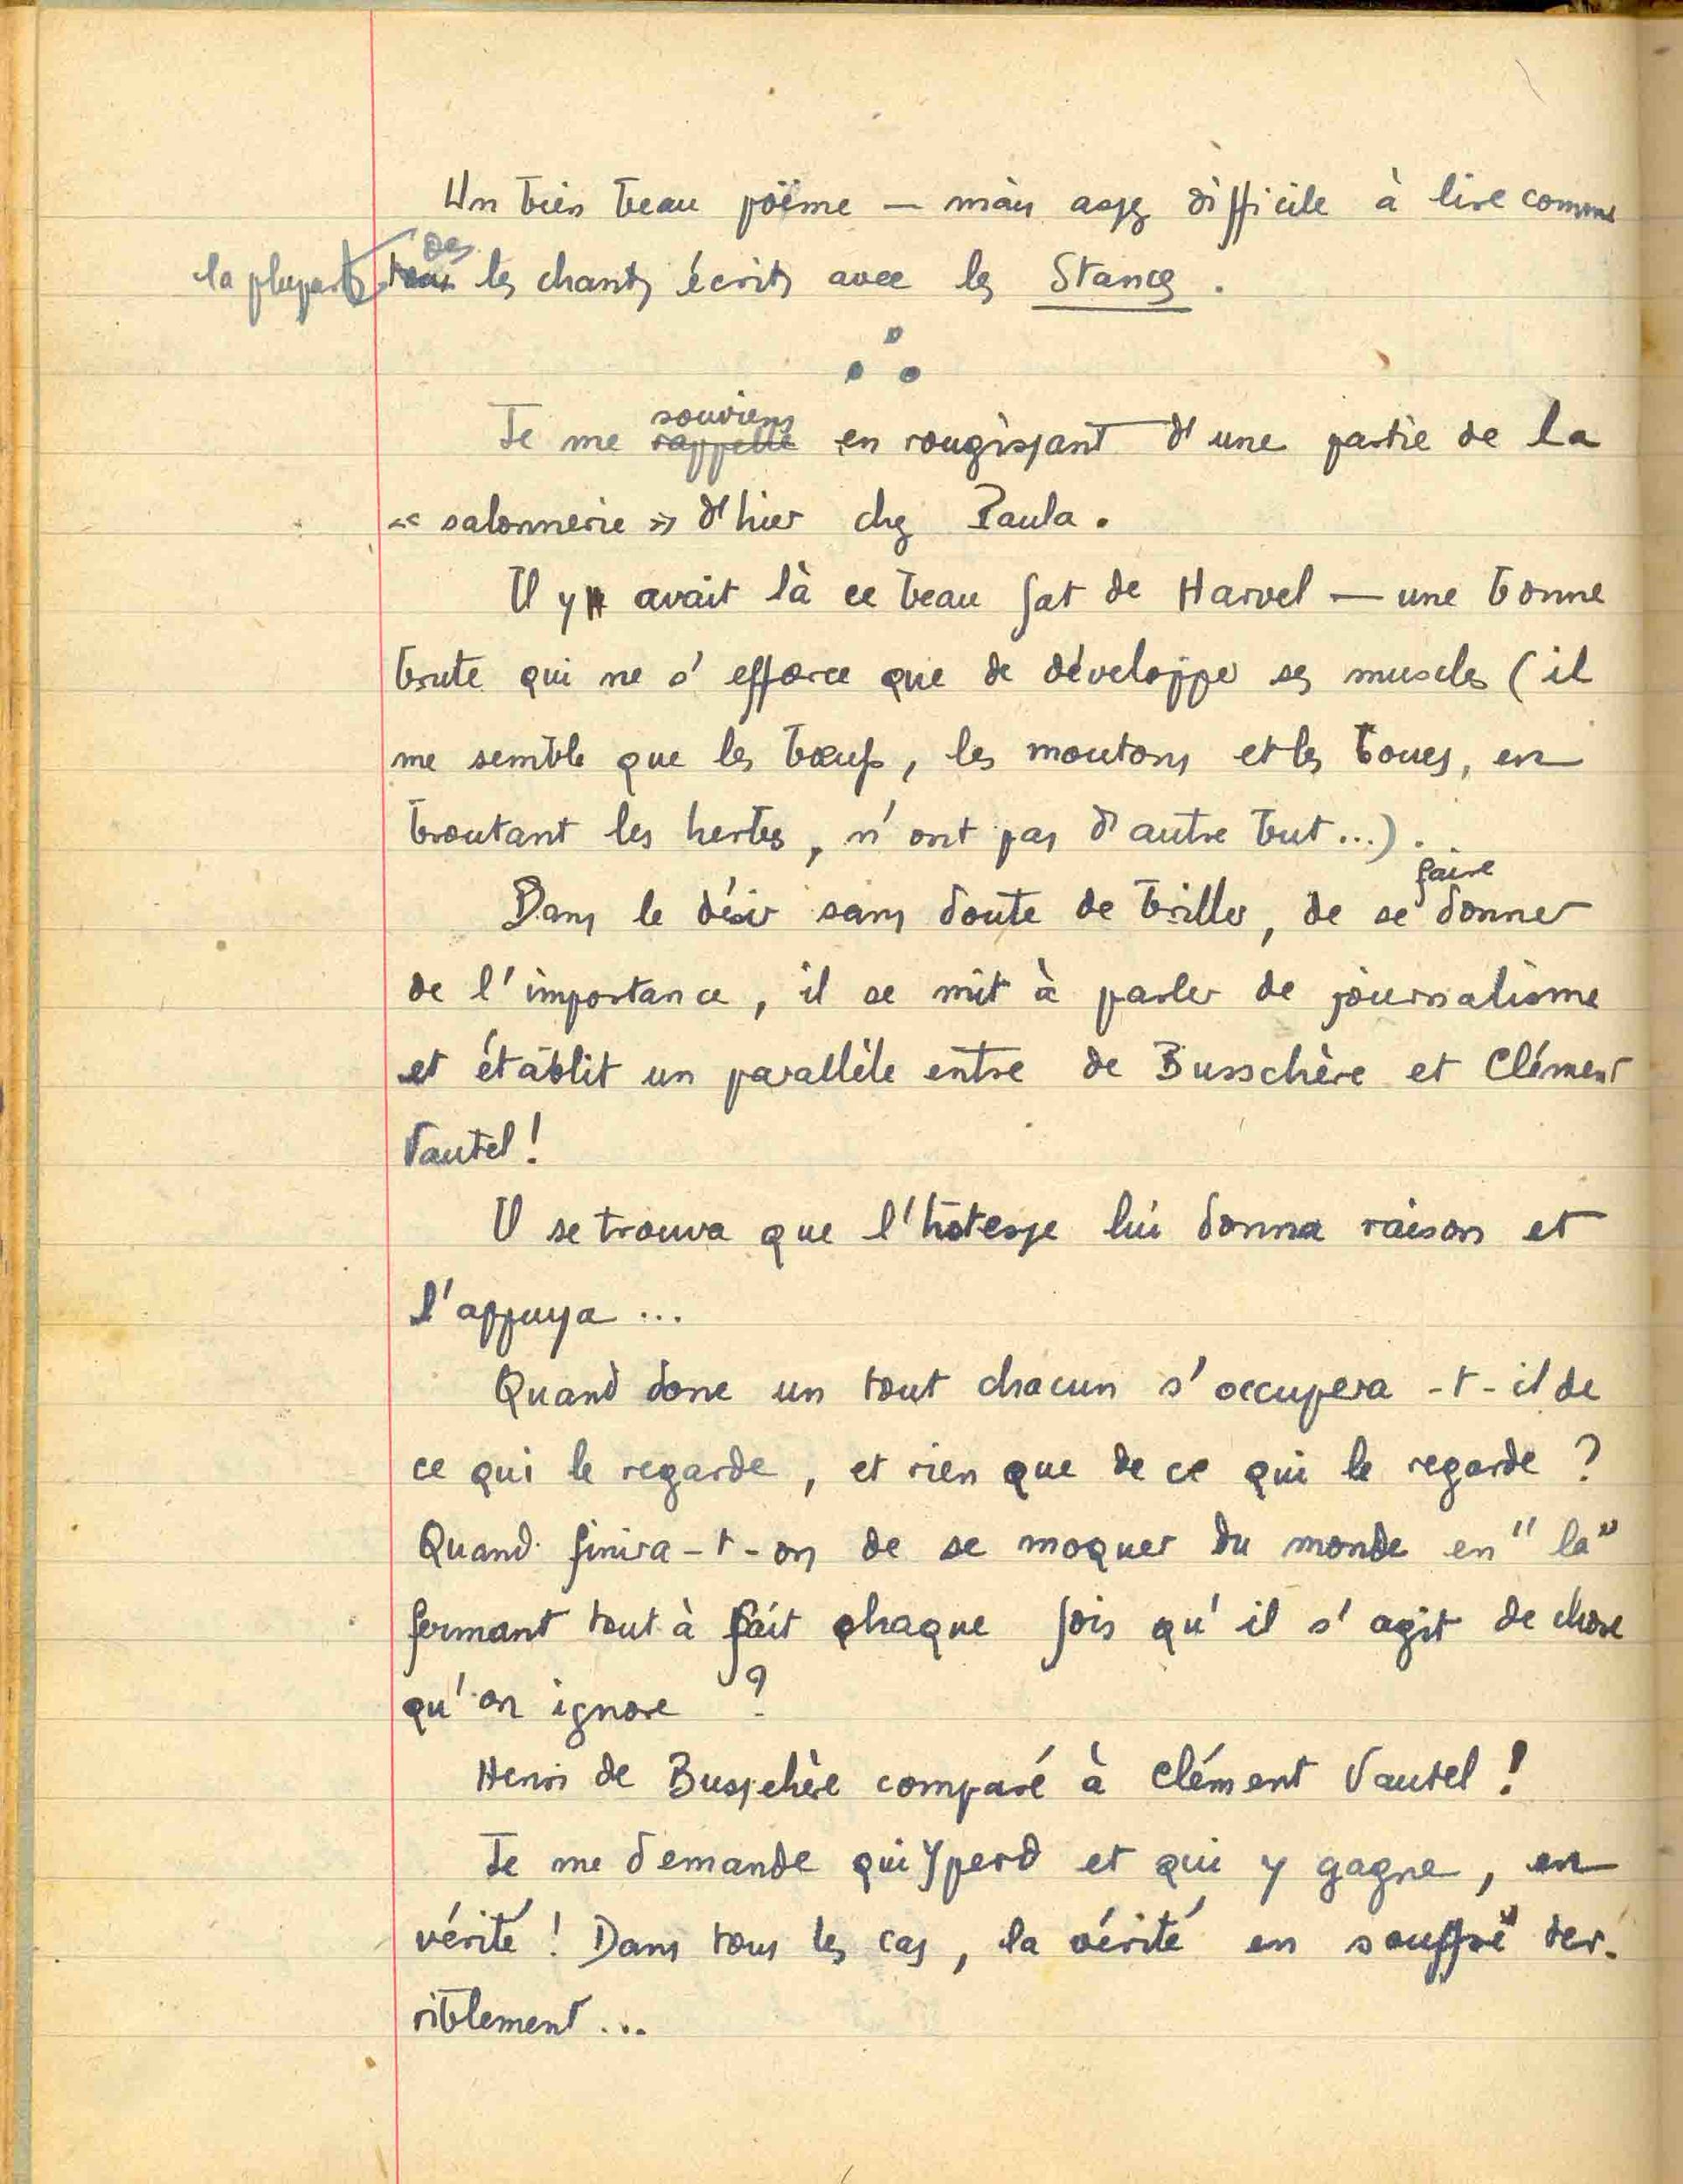 Un bien beau poème — mais assez difficile à lire comme
la plupart des les chants écrits avec les Stances.
Je me souviens en rougissant d'une partie de la
« salonnerie » d'hier chez Paula.
Il y avait là ce beau fat de Harvel — une bonne
brute qui ne s'efforce que de développer ses muscles (il
me semble que les bœufs, les moutons et les boucs, en
broutant les herbes, n'ont pas d'autre but...).
Dans le désir sans doute de briller, de se faire donner
de l'importance, il se mit à parler de journalisme
et établit un parallèle entre de Busschère et Clément
Vautel!
Il se trouva que l'hôtesse lui donna raison et
l'appuya ...
Quand donc un tout chacun s'occupera-t-il de
ce qui le regarde, et rien que de ce qui le regarde ?
Quand finira-t-on de se moquer du monde en "la"
fermant tout à fait chaque fois qu'il s'agit de chose
qu'on ignore ?
Henri de Busschère comparé à Clément Vautel !
Je me demande qui y perd et qui y gagne, en
vérité ! Dans tous les cas, la vérité en souffre ter-
riblement ...